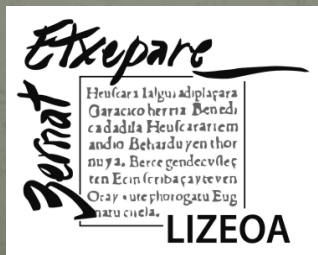 Etxepare
Bernat
Heuscara Ialgui adi plaçara
Garacico herria Benedi
cadadila Heuscarariem
andio Behardu yen thor
nuya. Berce gendec usteç
ten Ecin scriba çayteyen
Oray dute phorogatu Eug
anatu cirela.
LIZEOA